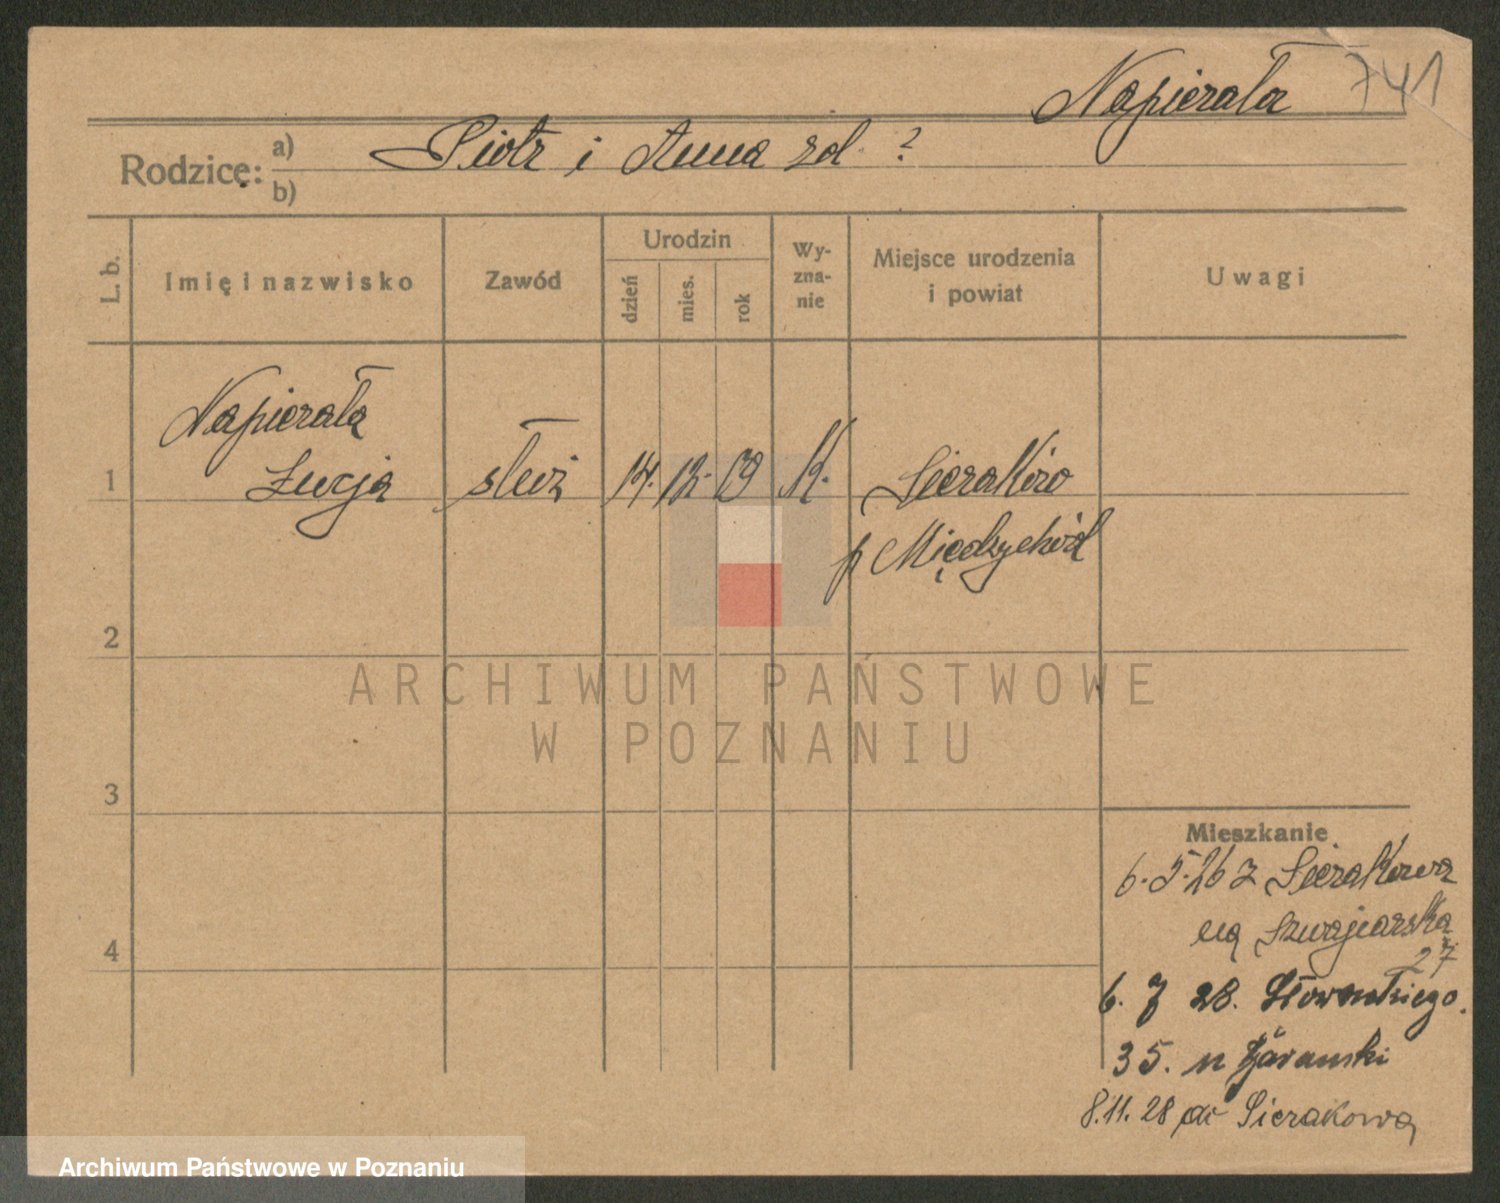 Napierała 741
Rodzice: a) Piotr i Anna zd. ?
b)
L. b.
Imię i nazwisko
Zawód
Urodzin
dzień
mies.
rok
Wy-
zna-
nie
Miejsce urodzenia
i powiat
Uwagi
Napierała
1 Łucja służ 14. 12. 09 K. Sierakowo
p Międzychód
2
3
4
ARCHIWUM PAŃSTWOWE
W POZNANIU
Mieszkanie
6.5.26 z Sierakowa
na Szwajcarska
27
6. 7 28. Słowackiego.
35. u
8.11.28 do Sierakowa
Archiwum Państwowe w Poznaniu